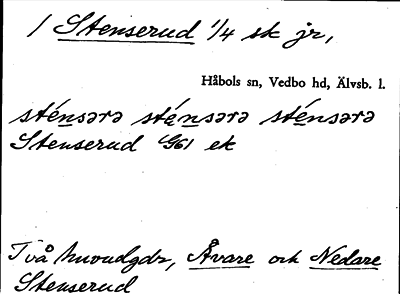 1 Stenserud 1/4 sk jr,
Håbols sn, Vedbo hd, Älvsb. l.
sténsərə sténsərə sténsərə
Stenserud G61 ek
Två huvudgdr, Åvare och Nedare
Stenserud